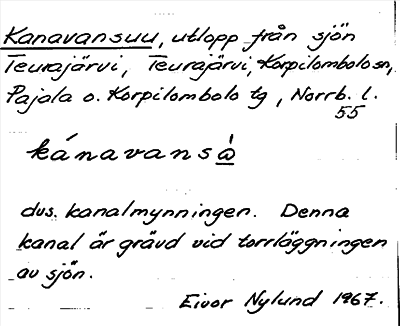 Kanavansuu, utlopp från sjön
Teurajärvi, Teurajärvi, Korpilombolo sn,
Pajala o. Korpilombolo tg, Norrb. l.
55
kánavans
dvs. kanalmynningen. Denna
kanal är grävd vid torrläggningen
av sjön.
Eivor Nylund 1967.